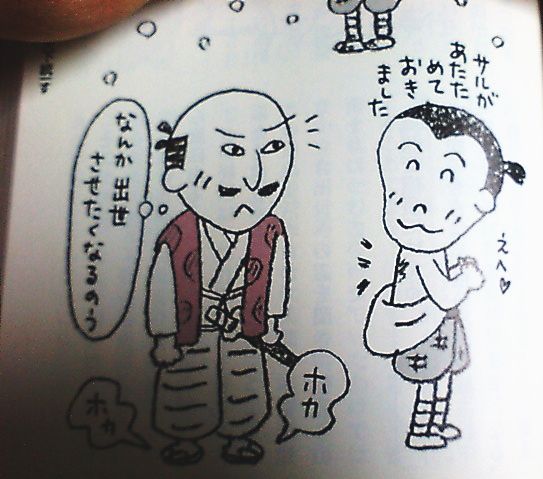 サルが
あたた
めて
おき
ました
えへ♡
なんか出世
させたくなるのう
ホカ
ホカ